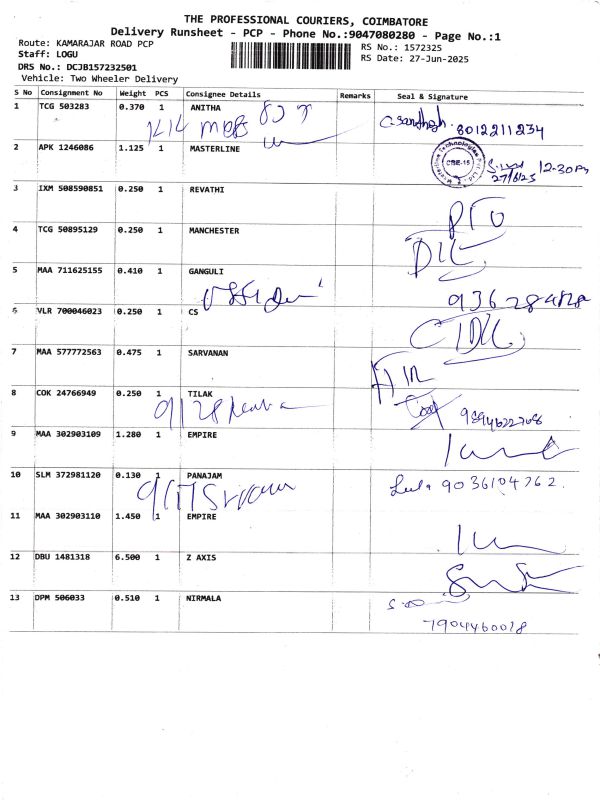 THE PROFESSIONAL COURIERS, COIMBATORE
Delivery Runsheet - PCP - Phone No.:9047080280 - Page No.:1
Route: KAMARAJAR ROAD PCP
Staff: LOGU
DRS No.: DCJB157232501
Vehicle: Two Wheeler Delivery
RS No.: 1572325
RS Date: 27-Jun-2025
S No Consignment No Weight PCS Consignee Details Remarks Seal & Signature
1 TCG 503283 0.370 1 ANITHA
8012211234
2 APK 1246086 1.125 1 MASTERLINE
CBE-15
27/6/25 12-30PM
3 IXM 508590851 0.250 1 REVATHI
4 TCG 50895129 0.250 1 MANCHESTER
5 MAA 711625155 0.410 1 GANGULI
6 VLR 700046023 0.250 1 CS
7 MAA 577772563 0.475 1 SARVANAN
8 COK 24766949 0.250 1 TILAK
9894622708
9 MAA 302903109 1.280 1 EMPIRE
10 SLM 372981120 0.130 1 PANAJAM
9036104762
11 MAA 302903110 1.450 1 EMPIRE
12 DBU 1481318 6.500 1 Z AXIS
13 DPM 506033 0.510 1 NIRMALA
7904460018